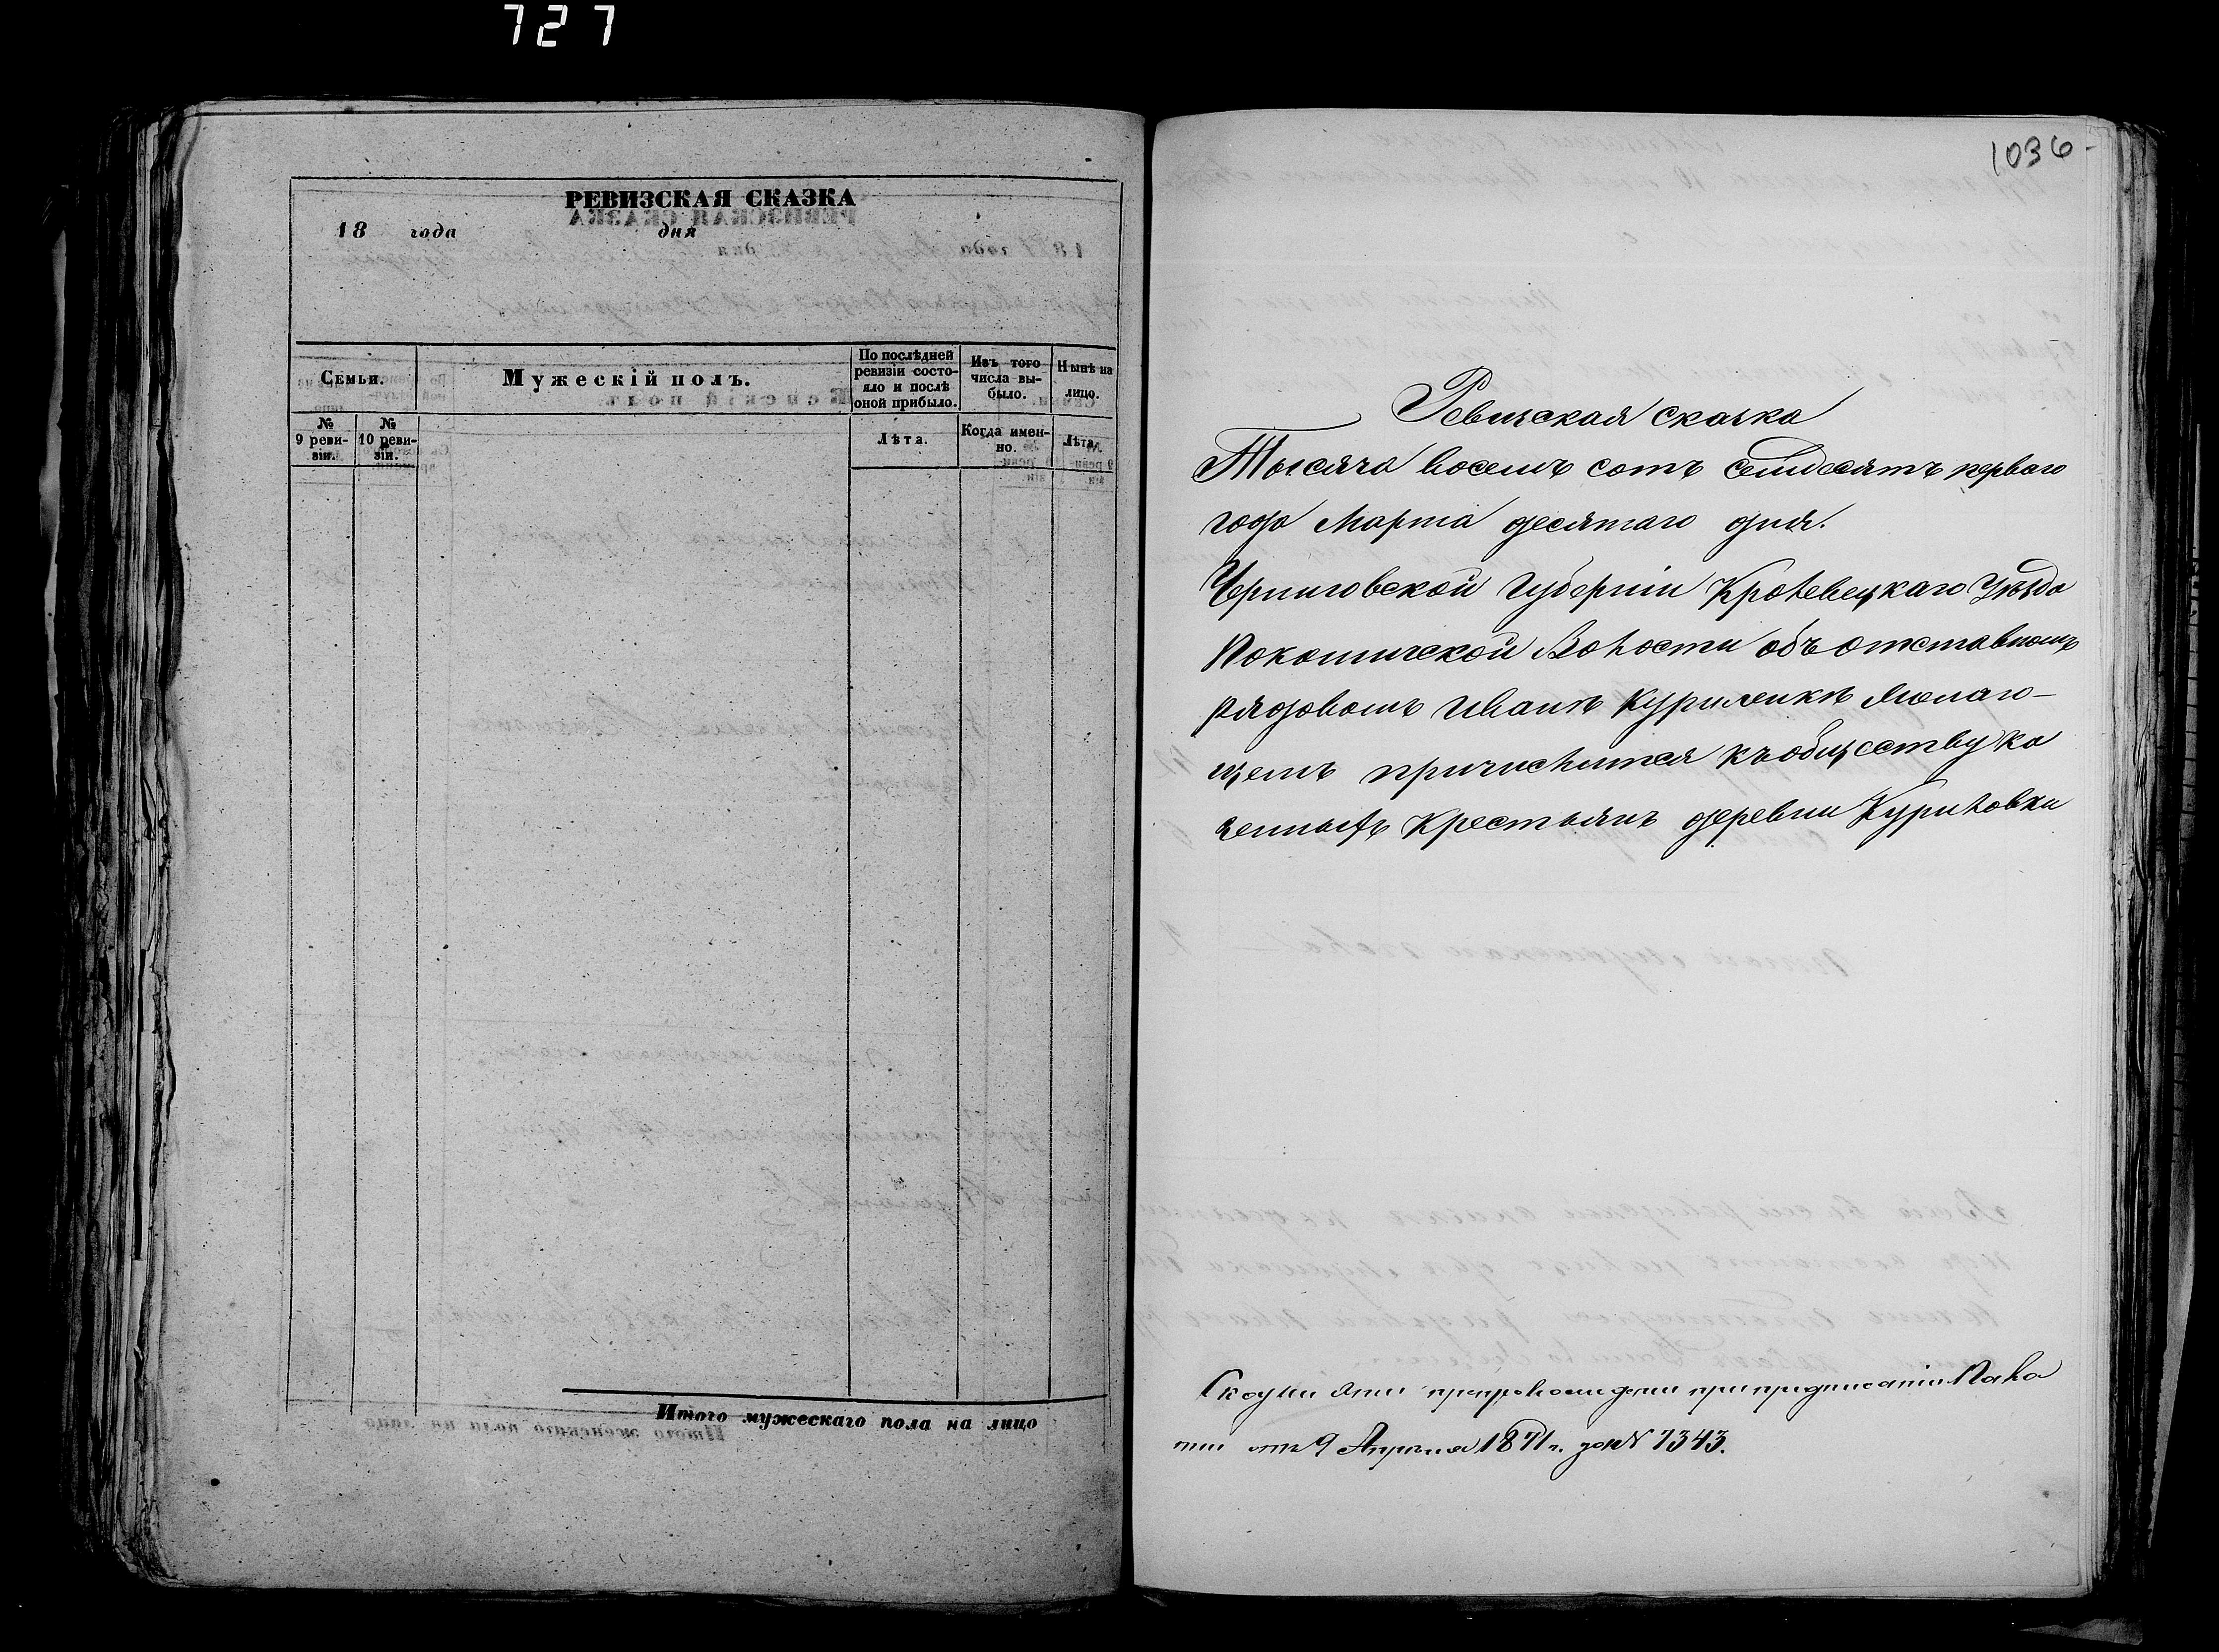 727
РЕВИЗСКАЯ СКАЗКА
18 года дня
Семьи.
Мужескій полъ.
По послѣдней ревизіи состояло и послѣ оной прибыло.
Изъ того числа выбыло.
Нынѣ на лицо.
№ 9 ревизіи.
№ 10 ревизіи.
Лѣта.
Когда именно.
Лѣта.
Итого мужескаго пола на лицо
1036
Ревизская сказка
Тысяча восемъ сотъ семдесятъ перваго
года Марта десятаго дня.
Черниговской Губерніи Кролевецкаго Уѣзда
Покошичской Волости объ отставномъ
рядовомъ Иванѣ Куриленкѣ желаю-
щемъ причислится къ обществу ка
зенныхъ Крестьянъ деревни Куриловки
Сказки эти препровождены при предписаніи Пала
ты отъ 9 Апрѣля 1871 г. за № 7343.